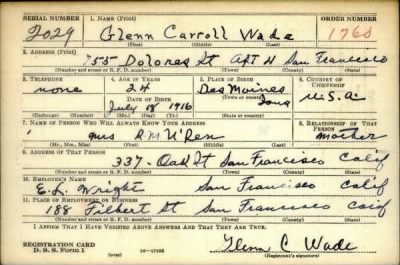 SERIAL NUMBER 1. NAME (Print) ORDER NUMBER
2029 Glenn Carroll Wade 1760
(First) (Middle) (Last)
2. ADDRESS (Print)
755 Dolores St APT H San Francisco
(Number and street or R. F. D. number) (Town) (County) (State)
3. TELEPHONE 4. AGE IN YEARS 5. PLACE OF BIRTH 6. COUNTRY OF CITIZENSHIP
none 24 Des Moines
DATE OF BIRTH (Town or county)
July 18 1916 Iowa U.S.A.
(Exchange) (Number) (Mo.) (Day) (Yr.) (State or country)
7. NAME OF PERSON WHO WILL ALWAYS KNOW YOUR ADDRESS 8. RELATIONSHIP OF THAT PERSON
Mrs R M U'Ren mother
(Mr., Mrs., Miss) (First) (Middle) (Last)
9. ADDRESS OF THAT PERSON
337 - Oak St San Francisco Calif
(Number and street or R. F. D. number) (Town) (County) (State)
10. EMPLOYER'S NAME
E. L. Wright San Francisco Calif
11. PLACE OF EMPLOYMENT OR BUSINESS
188 Filbert St San Francisco Calif
(Number and street or R. F. D. number) (Town) (County) (State)
I AFFIRM THAT I HAVE VERIFIED ABOVE ANSWERS AND THAT THEY ARE TRUE.
REGISTRATION CARD
D. S. S. Form 1 Glenn C Wade
(Registrant's signature)